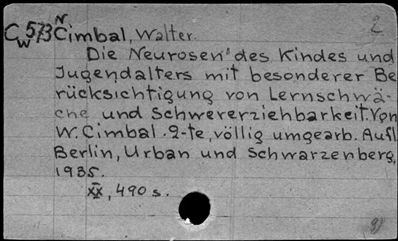 C573 N Cimbal, Walter. 2
W
Die Neurosen des Kindes und
Jugendalters mit besonderer Be
rücksichtigung von Lernschwä-
che und Schwererziehbarkeit. Von
W. Cimbal. 2-te, völlig umgearb. Aufl.
Berlin, Urban und Schwarzenberg,
1935.
XX, 490 s.